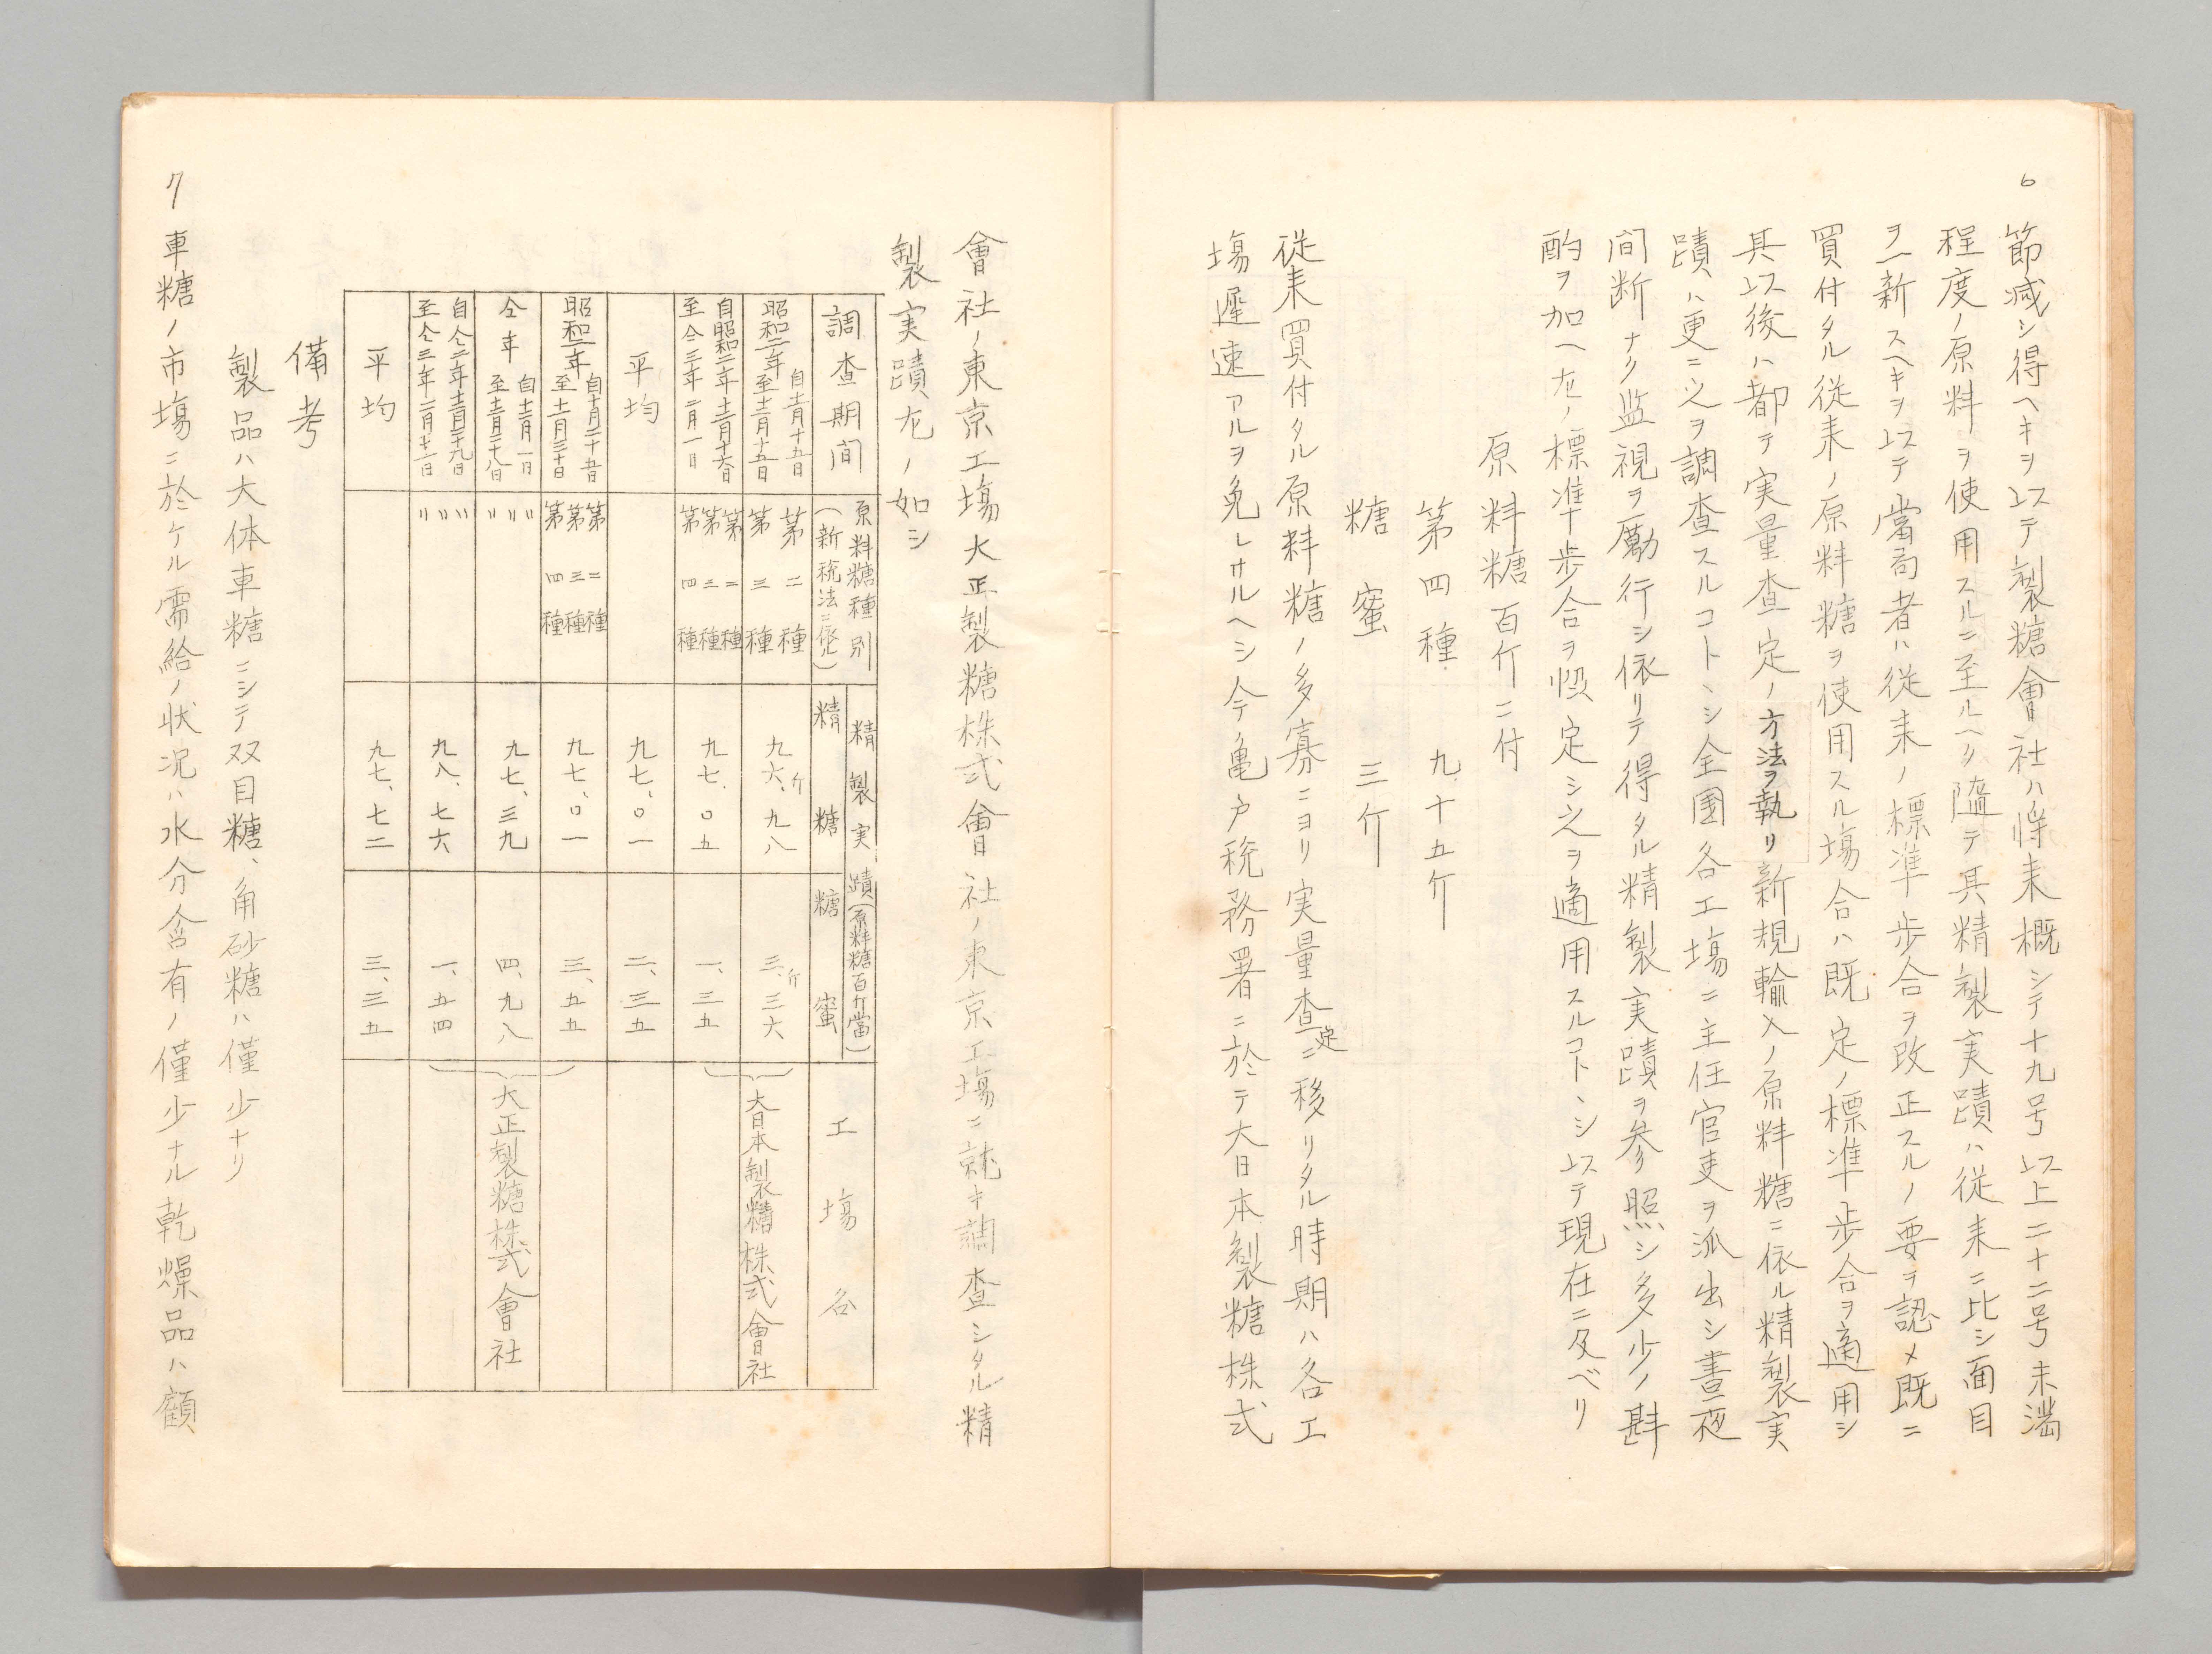 6
節減シ得ヘキヲ以テ製糖會社ハ將来概シテ十九号以上二十二号未満
程度ノ原料ヲ使用スルニ至ルヘク随テ其精製実蹟ハ従来ニ比シ面目
ヲ一新スヘキヲ以テ當局者ハ従来ノ標準歩合ヲ改正スルノ要ヲ認メ既ニ
買付タル従来ノ原料糖ヲ使用スル塲合ハ既定ノ標準歩合ヲ適用シ
其以後ハ都テ実量査定ノ方法ヲ執リ新規輸入ノ原料糖ニ依ル精製実
蹟ハ更ニ之ヲ調査スルコトヽシ全国各工塲ニ主任官吏ヲ派出シ晝夜
间断ナク监視ヲ励行シ依リテ得タル精製実蹟ヲ参照シ多少ノ斟
酌ヲ加ヘ左ノ標准歩合ヲ假定シ之ヲ適用スルコトヽシ以テ現在ニ及ベリ
原料糖百斤ニ付
第四種 九十五斤
糖蜜 三斤
従来買付タル原料糖ノ多寡ニヨリ実量査定ニ移リタル時期ハ各工
塲遲速アルヲ免レサルヘシ今亀户税務署ニ於テ大日本製糖株式
會社ノ東京工塲大正製糖株式會社ノ東京工塲ニ就キ調査シタル精
製実蹟左ノ如シ
調査期间 原料糖種別(新税法ニ依ル) 精製実蹟(原料糖百斤當) 精糖 糖蜜 工塲名
昭和二年 自十一月十五日 至十二月十五日 第二種 第三種 九六、九八斤 三、三六斤 大日本製糖株式會社
自昭和二年十二月十六日 至仝三年二月一日 第二種 第三種 第四種 九七、〇五 一、三五
平均 九七、〇一 二、三五
昭和二年 自十月二十五日 至十一月三十日 第二種 第三種 第四種 九七、〇一 三、五五 大正製糖株式會社
仝年 自十二月一日 至十二月二十八日 〃 〃 〃 九七、三九 四、九八
自仝二年十二月二十九日 至仝三年二月十一日 〃 〃 〃 九八、七六 一、五四
平均 九七、七二 三、三五
備考
製品ハ大体車糖ニシテ双目糖、角砂糖ハ僅少ナリ
7 車糖ノ市塲ニ於ケル需給ノ状况ハ水分含有ノ僅少ナル乾燥品ハ顧